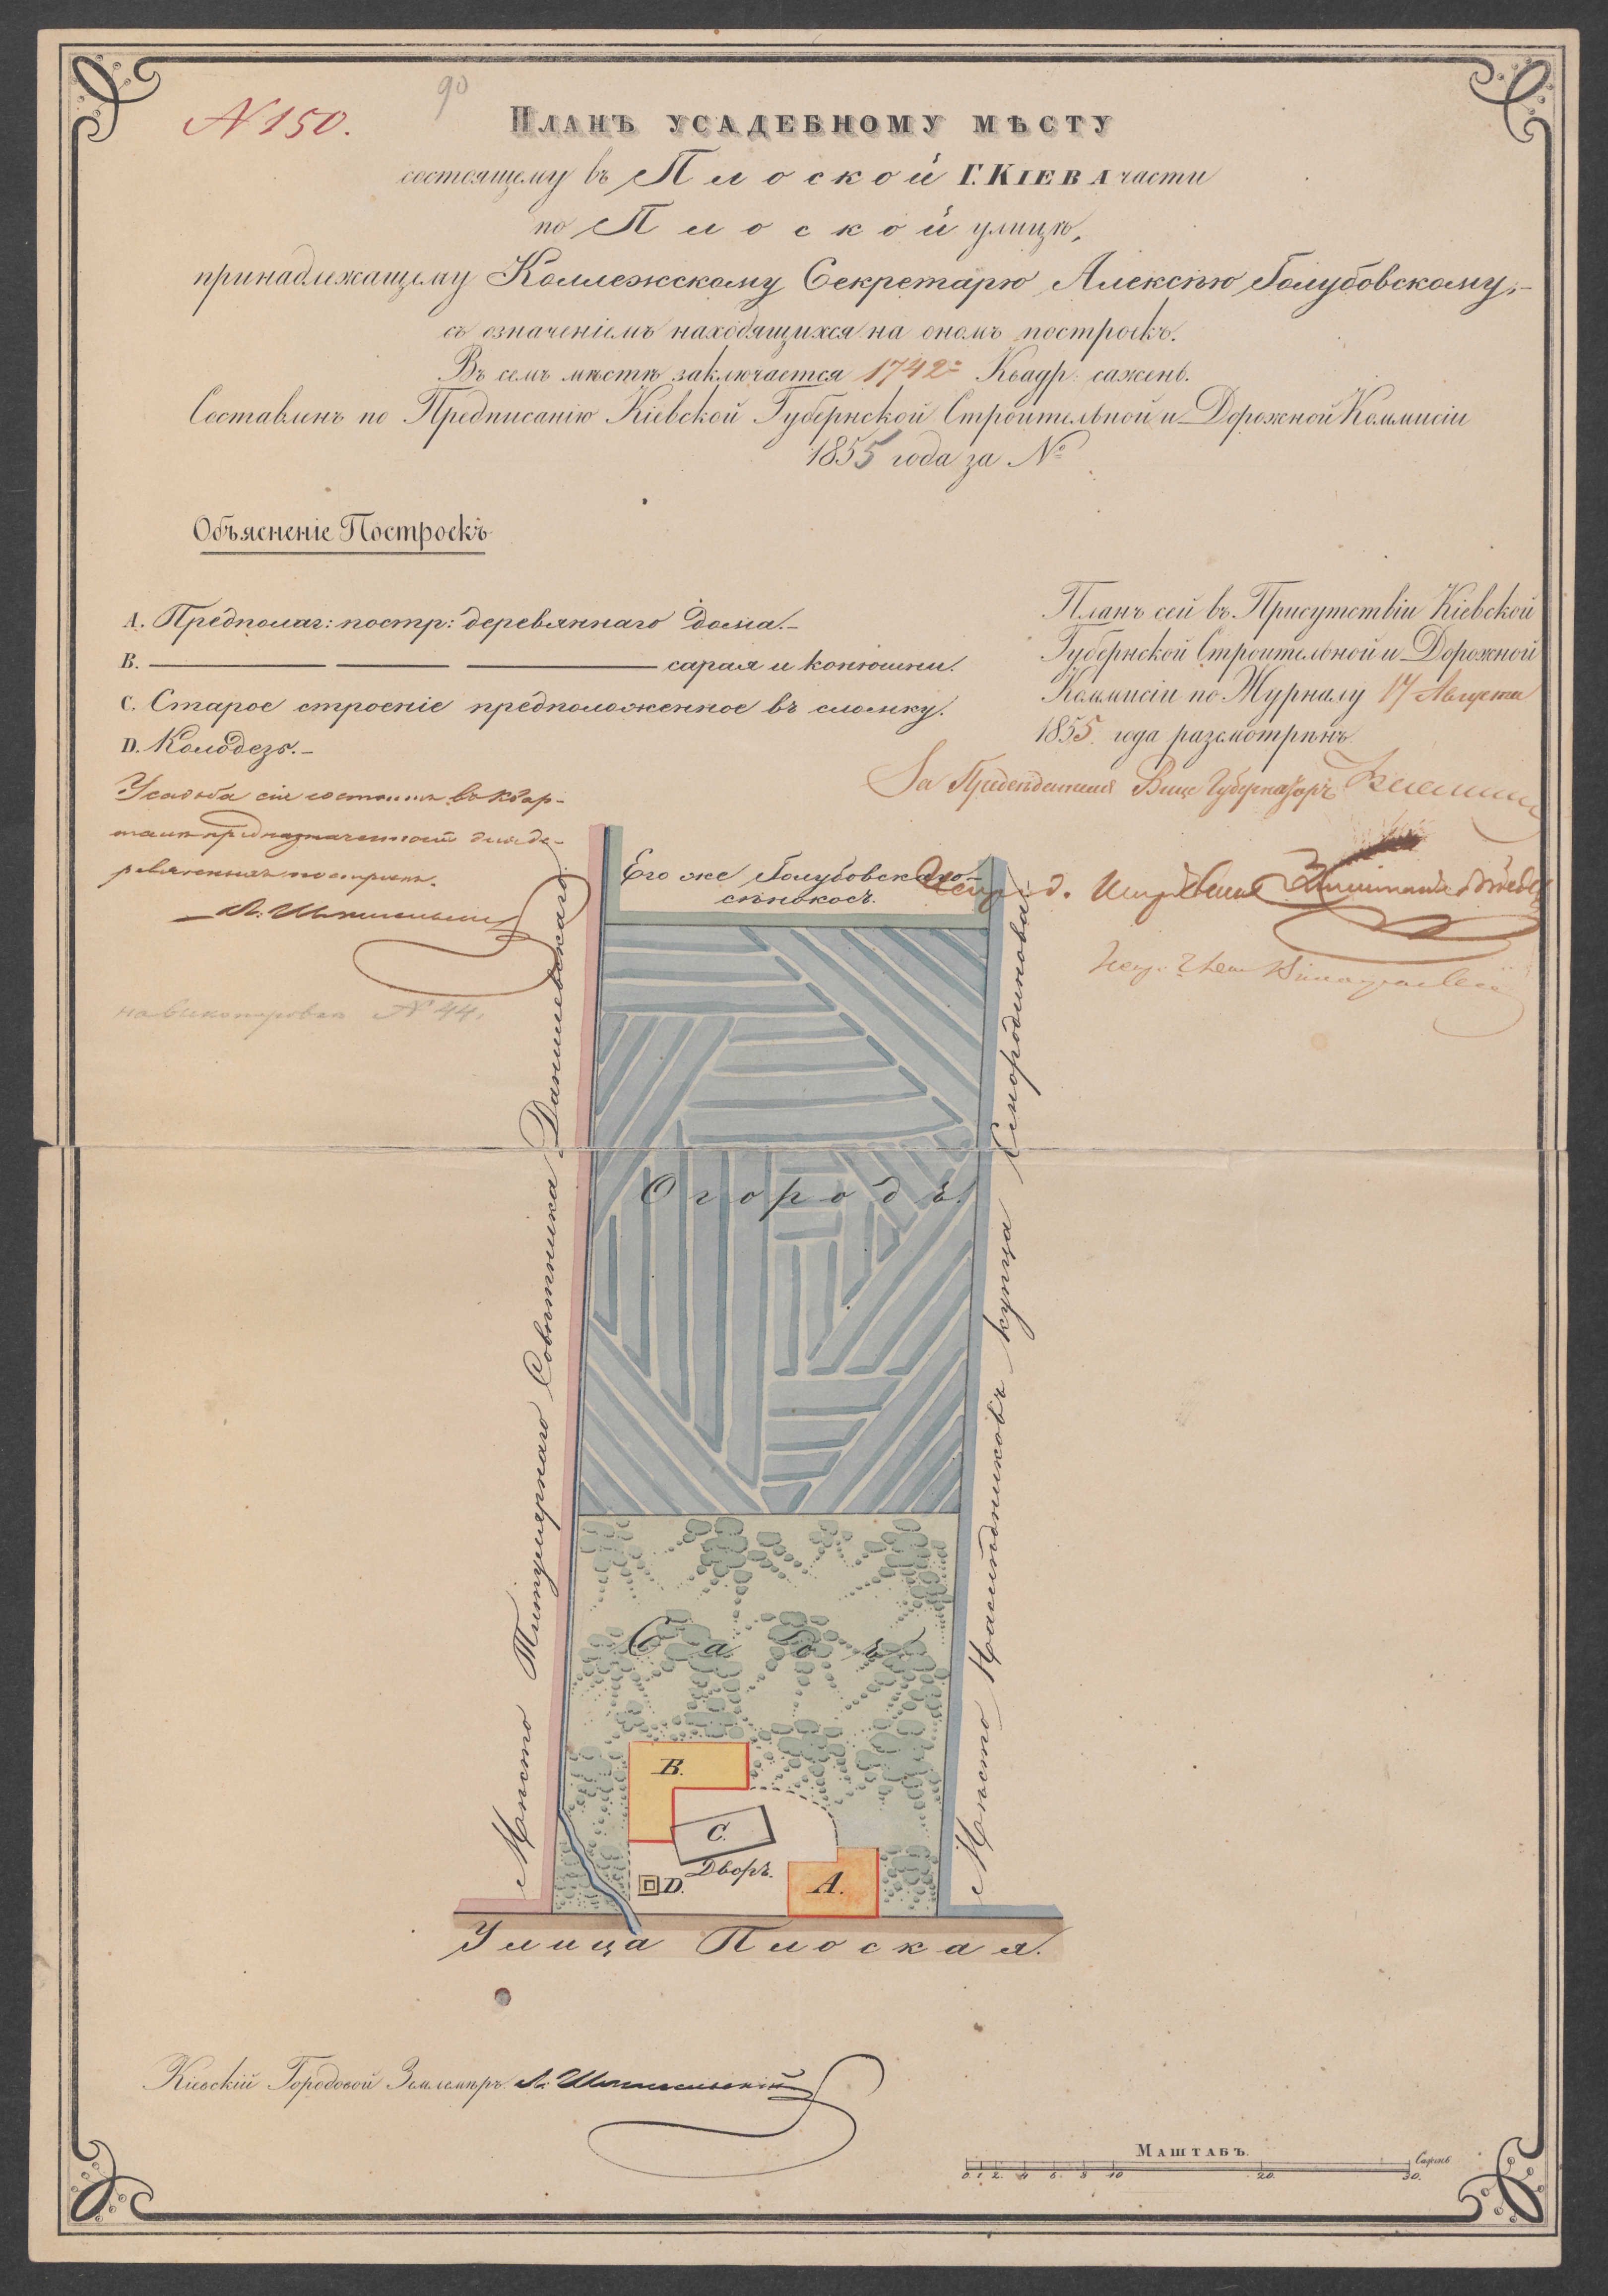 N 150.
90
Планъ усадебному мѣсту
состоящему въ Плоской Г. Кіева части
по Плоской улицѣ,
принадлежащему Коллежскому Секретарю Алексѣю Голубовскому,
съ означеніемъ находящихся на ономъ построекъ.
Въ семъ мѣстѣ заключается 1742 Квадр: сажень.
Составленъ по Предписанію Кіевской Губернской Строительной и Дорожной Коммисіи
1855 года за №
Объясненіе Построекъ
A. Предполаг: постр: деревяннаго дома.
B. сарая и конюшни.
C. Старое строеніе предположенное въ сломку.
D. Колодезь.
Усадьба сія состоитъ въ квар-
талѣ предназначенномъ для де-
ревянныхъ построекъ.
№ 44.
Планъ сей въ Присутствіи Кіевской
Губернской Строительной и Дорожной
Коммисіи по Журналу 17 Августа
1855 года разсмотрѣнъ.
За Предсѣдателя Вице Губернаторъ
Его же Голубовскаго
сѣнокосъ.
Мѣсто Титулярнаго Совѣтника Данилевскаго
Мѣсто Наслѣдниковъ купца Смородинова
Огородъ.
Садъ
B.
C.
Дворъ.
D.
A.
Улица Плоская.
Кіевскій Городовой Землемѣръ
Маштабъ.
Сажень
0. 1. 2. 4 6. 8 10 20. 30.